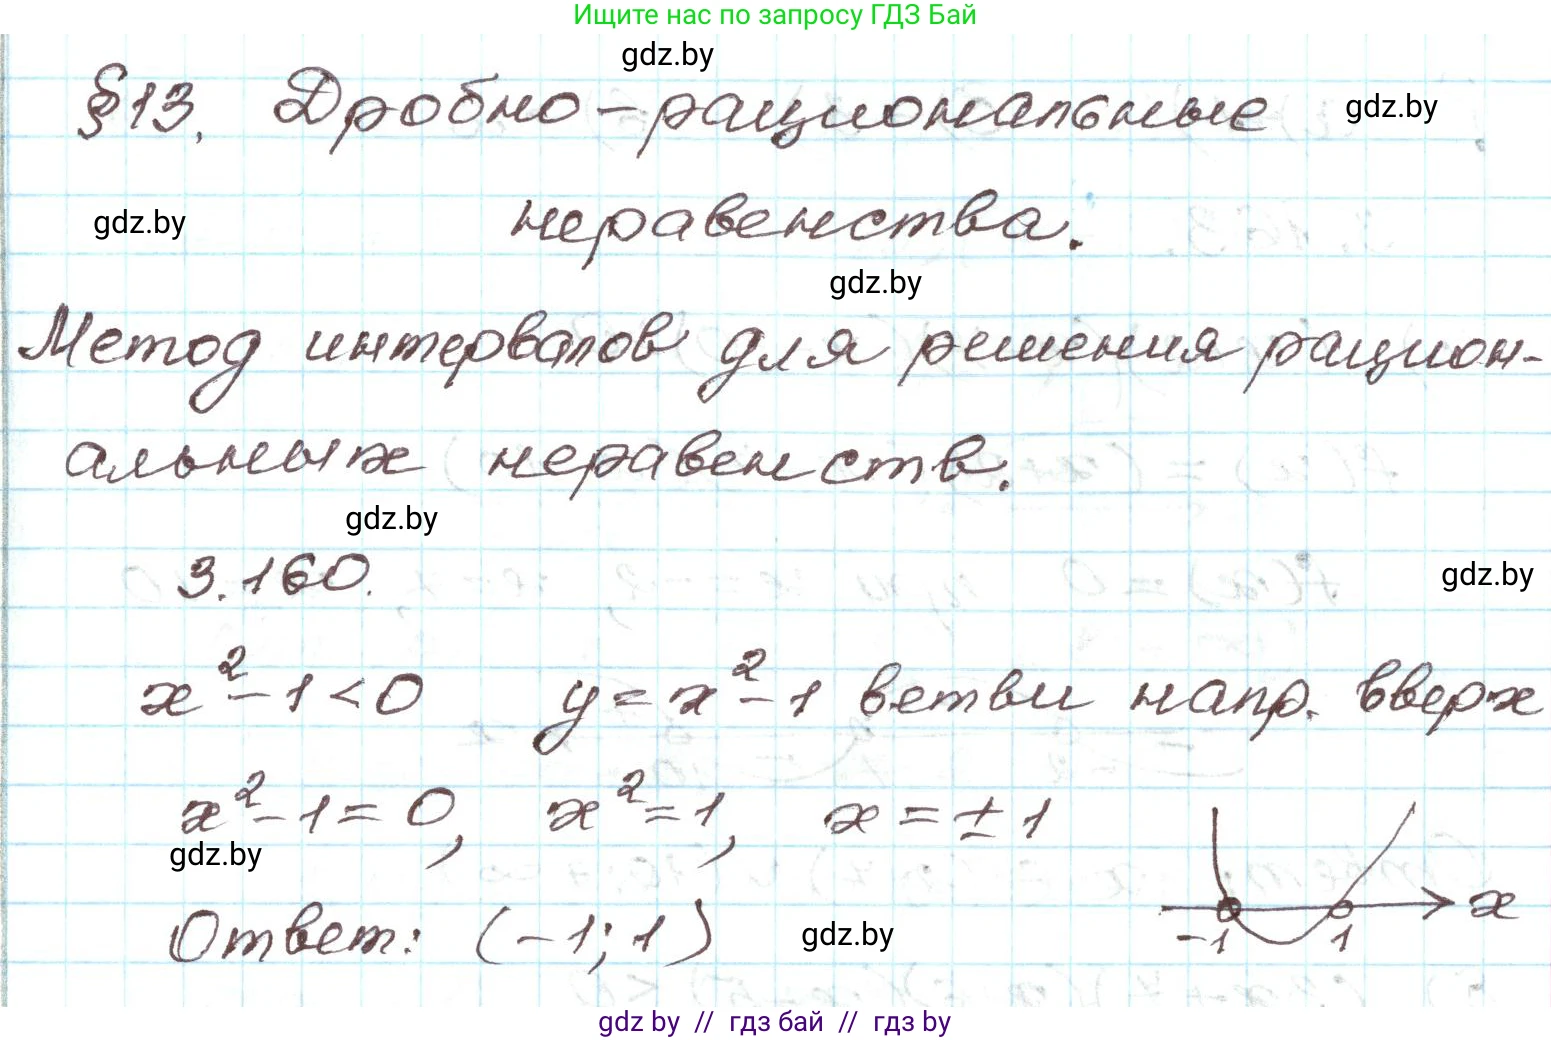 Ищите нас по запросу ГДЗ Бай
gdz.by
§13. Дробно-рациональные
gdz.by
gdz.by
неравенства.
gdz.by
Метод интервалов для решения рацион-
альных неравенств.
gdz.by
3.160.
gdz.by
x²-1<0 y=x²-1 ветви напр. вверх
x²-1=0, x²=1, x=±1
gdz.by
x
Ответ: (-1; 1)
gdz.by
-1 1
gdz by // гдз бай // гдз by